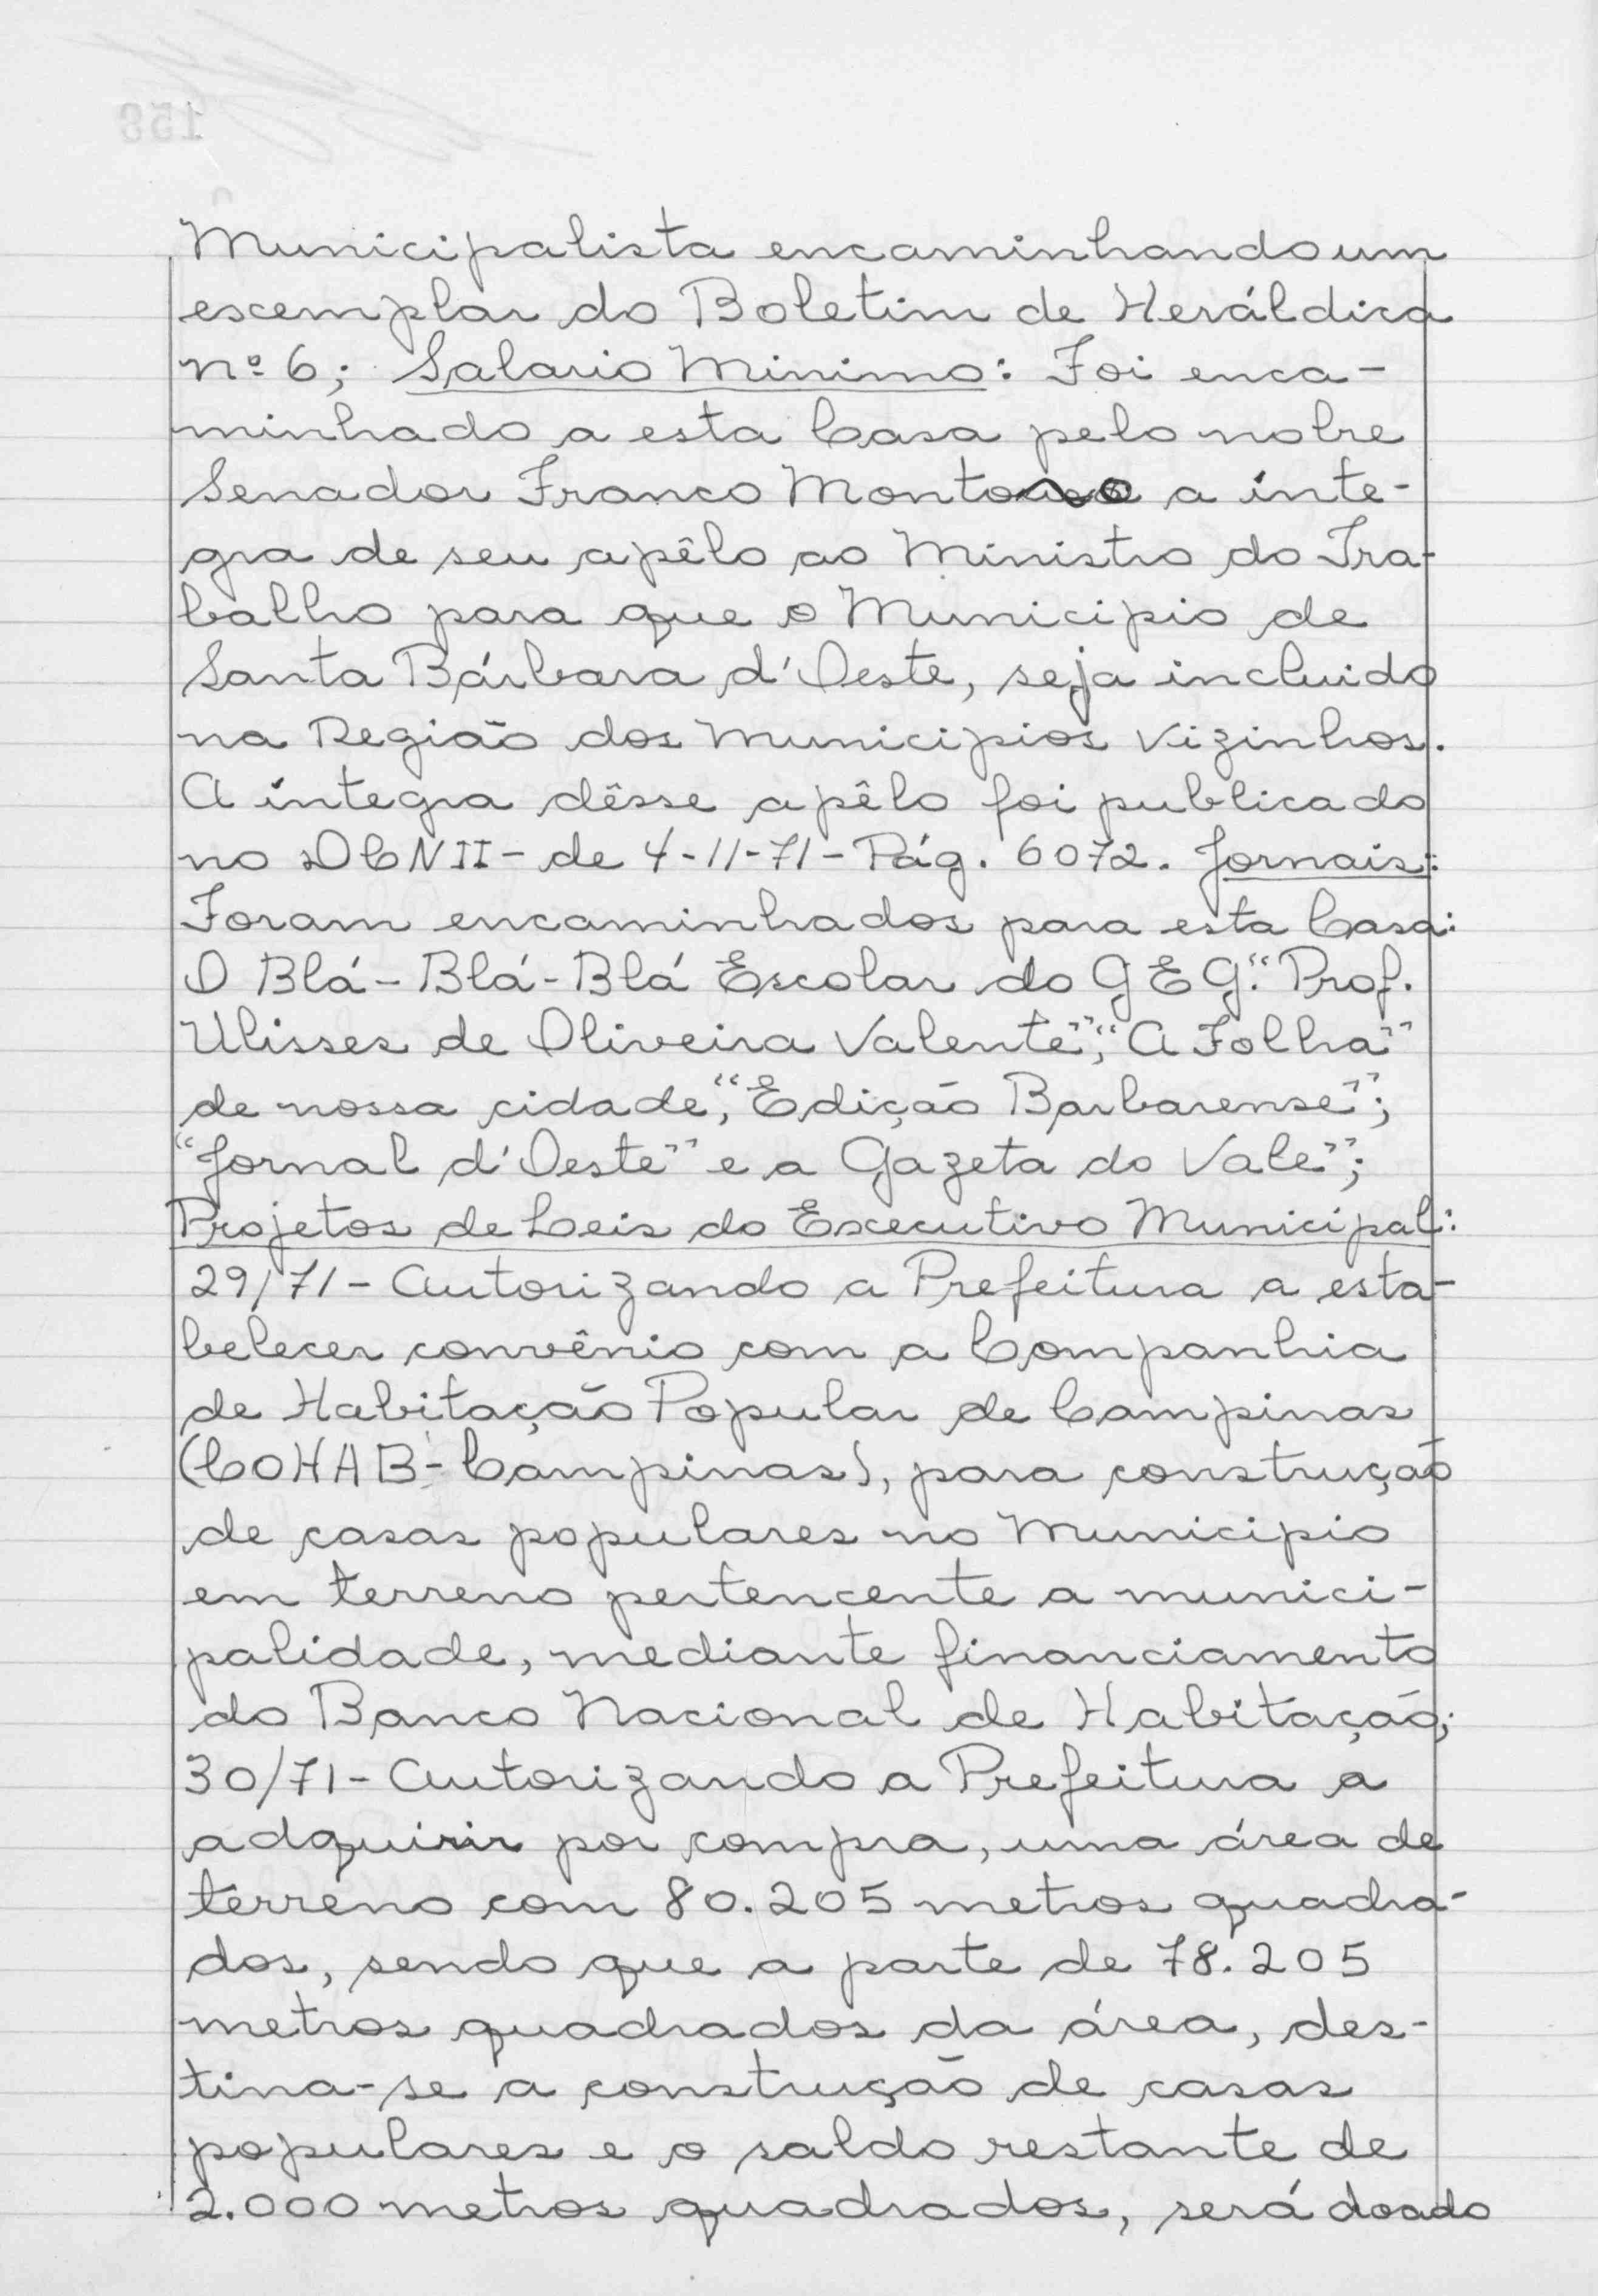 Municipalista encaminhando um
exemplar do Boletim de Heráldica
nº 6; Salario Minimo: Foi enca-
minhado a esta Casa pelo nobre
Senador Franco Montoro a inte-
gra de seu apêlo ao Ministro do Tra-
balho para que o Municipio de
Santa Bárbara d'Oeste, seja incluido
na Região dos Municipios Vizinhos.
A integra dêsse apêlo foi publicado
no DCNII - de 4-11-71 - Pág. 6072. Jornais:
Foram encaminhados para esta Casa:
O Blá-Blá-Blá Escolar do GEG. "Prof.
Ulisses de Oliveira Valente"; "A Folha"
de nossa cidade, "Edição Barbarense";
"Jornal d'Oeste" e a Gazeta do Vale";
Projetos de Leis do Executivo Municipal:
29/71 - Autorizando a Prefeitura a esta-
belecer convênio com a Companhia
de Habitação Popular de Campinas
(COHAB - Campinas), para construção
de casas populares no Municipio
em terreno pertencente a munici-
palidade, mediante financiamento
do Banco Nacional de Habitação;
30/71 - Autorizando a Prefeitura a
adquirir por compra, uma área de
terreno com 80.205 metros quadra-
dos, sendo que a parte de 78.205
metros quadrados da área, des-
tina-se a construção de casas
populares e o saldo restante de
2.000 metros quadrados, será doado